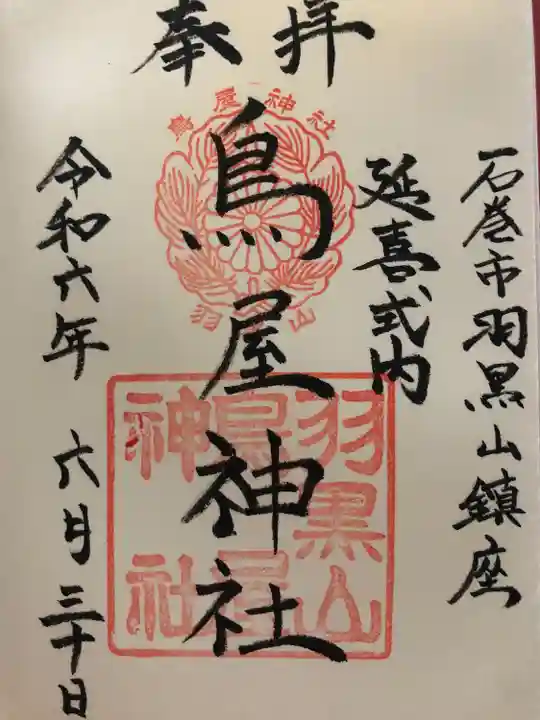 奉拝
石巻市羽黒山鎮座
延喜式内
鳥屋神社
令和六年 六月三十日
鳥屋神社
羽山
羽黒山
鳥屋
神社